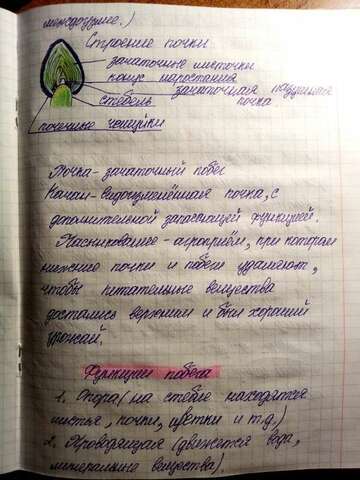 междоузлие.)
Строение почки
зачаточные листочки
конус нарастания
зачаточная пазушная
стебель почка
почечные чешуйки
Почка-зачаточный побег
Кочан-видоизменённая почка, с
дополнительной запасающей функцией.
Пасынкование-агроприём, при котором
нижние почки и побеги удаляют,
чтобы питательные вещества
достались верхним и был хороший
урожай.
Функции побега
1. Опора (на стебле находятся
листья, почки, цветки и т.д.)
2. Проводящая (движется вода,
минеральные вещества)